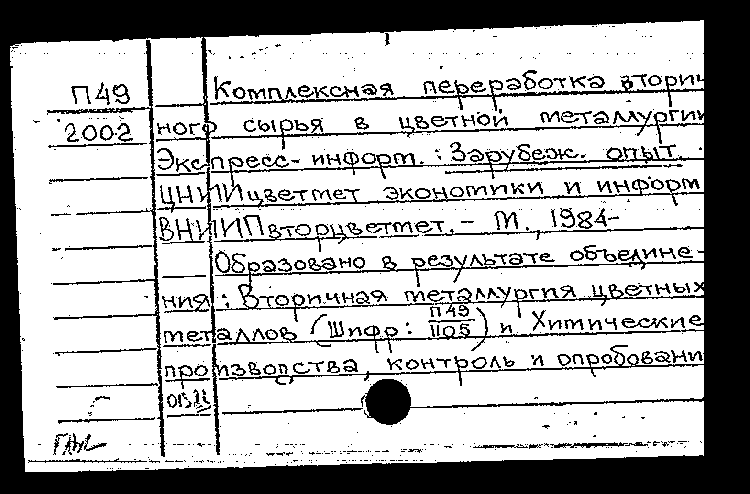 П49
2002
Комплексная переработка вторич
ного сырья в цветной металлургии
Экспресс-информ. : Зарубеж. опыт.
ЦНИИцветмет экономики и информ
ВНИИПвторцветмет. - М., 1984-
Образовано в результате объедине-
ния : Вторичная металлургия цветных
металлов (Шифр: П49/1105) и Химические
производства, контроль и опробовани